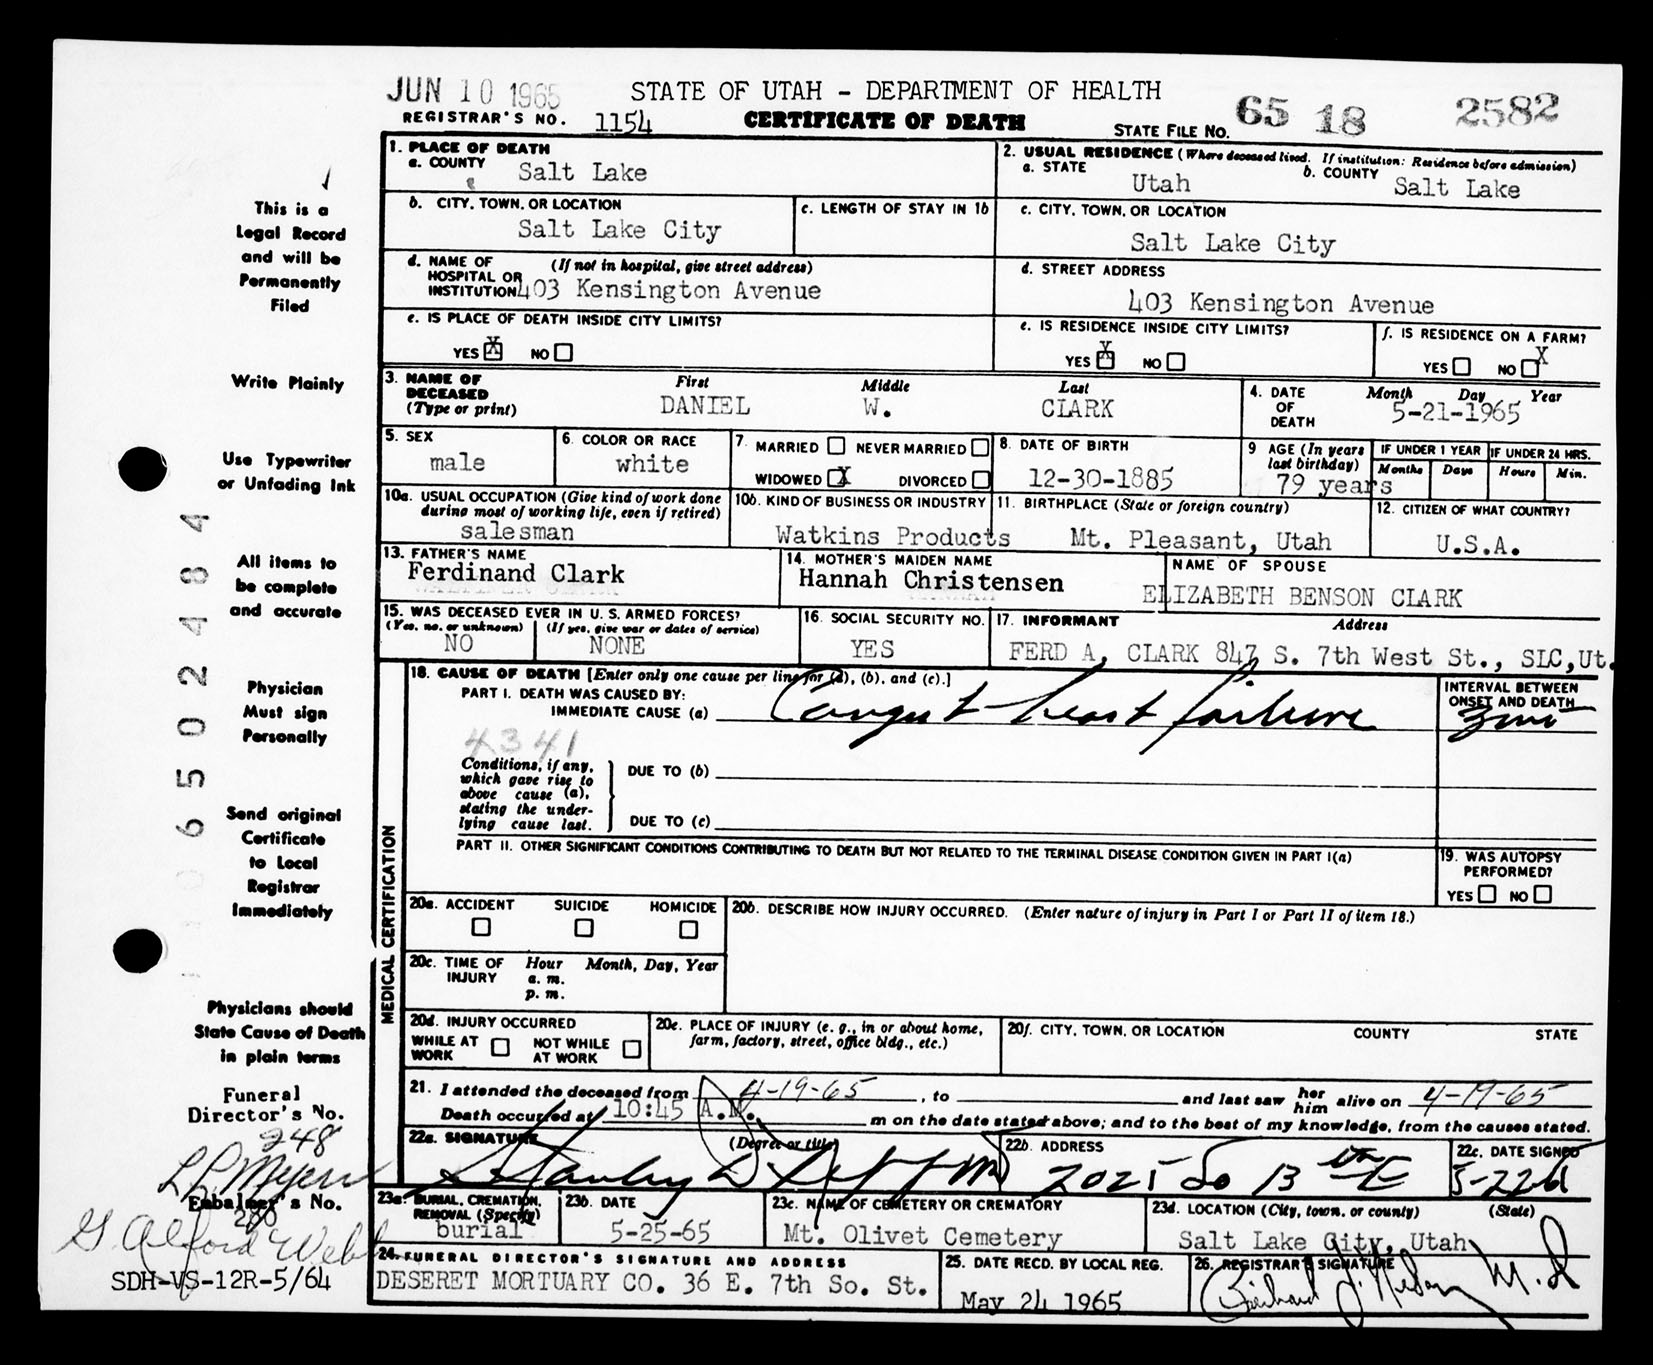 JUN 10 1965 STATE OF UTAH - DEPARTMENT OF HEALTH 65 18 2582
REGISTRAR'S NO. 1154 CERTIFICATE OF DEATH STATE FILE NO.
1. PLACE OF DEATH
a. COUNTY Salt Lake
2. USUAL RESIDENCE (Where deceased lived. If institution: Residence before admission)
a. STATE Utah b. COUNTY Salt Lake
b. CITY, TOWN, OR LOCATION
Salt Lake City
c. LENGTH OF STAY IN 1b
c. CITY, TOWN, OR LOCATION
Salt Lake City
d. NAME OF (If not in hospital, give street address)
HOSPITAL OR
INSTITUTION 403 Kensington Avenue
d. STREET ADDRESS
403 Kensington Avenue
e. IS PLACE OF DEATH INSIDE CITY LIMITS?
YES X NO
e. IS RESIDENCE INSIDE CITY LIMITS?
YES X NO
f. IS RESIDENCE ON A FARM?
YES NO X
3. NAME OF First Middle Last
DECEASED DANIEL W. CLARK
(Type or print)
4. DATE Month Day Year
OF 5-21-1965
DEATH
5. SEX
male
6. COLOR OR RACE
white
7. MARRIED NEVER MARRIED
WIDOWED X DIVORCED
8. DATE OF BIRTH
12-30-1885
9 AGE (In years
last birthday)
79 years
IF UNDER 1 YEAR IF UNDER 24 HRS.
Months Days Hours Min.
10a. USUAL OCCUPATION (Give kind of work done
during most of working life, even if retired)
salesman
10b. KIND OF BUSINESS OR INDUSTRY
Watkins Products
11. BIRTHPLACE (State or foreign country)
Mt. Pleasant, Utah
12. CITIZEN OF WHAT COUNTRY?
U.S.A.
13. FATHER'S NAME
Ferdinand Clark
14. MOTHER'S MAIDEN NAME
Hannah Christensen
NAME OF SPOUSE
ELIZABETH BENSON CLARK
15. WAS DECEASED EVER IN U. S. ARMED FORCES?
(Yes, no, or unknown) (If yes, give war or dates of service)
NO NONE
16. SOCIAL SECURITY NO.
YES
17. INFORMANT Address
FERD A. CLARK 847 S. 7th West St., SLC,Ut.
MEDICAL CERTIFICATION
18. CAUSE OF DEATH [Enter only one cause per line for (a), (b), and (c).]
PART I. DEATH WAS CAUSED BY:
IMMEDIATE CAUSE (a) Congest heart failure
INTERVAL BETWEEN
ONSET AND DEATH
4341
Conditions, if any,
which gave rise to
above cause (a),
stating the under-
lying cause last.
DUE TO (b)
DUE TO (c)
PART II. OTHER SIGNIFICANT CONDITIONS CONTRIBUTING TO DEATH BUT NOT RELATED TO THE TERMINAL DISEASE CONDITION GIVEN IN PART I(a)
19. WAS AUTOPSY
PERFORMED?
YES NO
20a. ACCIDENT SUICIDE HOMICIDE
20b. DESCRIBE HOW INJURY OCCURRED. (Enter nature of injury in Part I or Part II of item 18.)
20c. TIME OF Hour Month, Day, Year
INJURY a. m.
p. m.
20d. INJURY OCCURRED
WHILE AT NOT WHILE
WORK AT WORK
20e. PLACE OF INJURY (e. g., in or about home,
farm, factory, street, office bldg., etc.)
20f. CITY, TOWN, OR LOCATION COUNTY STATE
21. I attended the deceased from 4-19-65, to and last saw her him alive on 4-19-65
Death occurred at 10:45 A.M. m on the date stated above; and to the best of my knowledge, from the causes stated.
22a. SIGNATURE (Degree or title)
Stanley D
22b. ADDRESS
2025 So 13th E
22c. DATE SIGNED
5-22-65
23a. BURIAL, CREMATION,
REMOVAL (Specify)
burial
23b. DATE
5-25-65
23c. NAME OF CEMETERY OR CREMATORY
Mt. Olivet Cemetery
23d. LOCATION (City, town, or county) (State)
Salt Lake City, Utah
24. FUNERAL DIRECTOR'S SIGNATURE AND ADDRESS
DESERET MORTUARY CO. 36 E. 7th So. St.
25. DATE RECD. BY LOCAL REG.
May 24 1965
26. REGISTRAR'S SIGNATURE
M.D
This is a
Legal Record
and will be
Permanently
Filed
Write Plainly
Use Typewriter
or Unfading Ink
All items to
be complete
and accurate
Physician
Must sign
Personally
Send original
Certificate
to Local
Registrar
Immediately
Physicians should
State Cause of Death
in plain terms
Funeral
Director's No.
248
L L Myers
Embalmer's No.
286
G Alford Webb
SDH-VS-12R-5/64
06502484